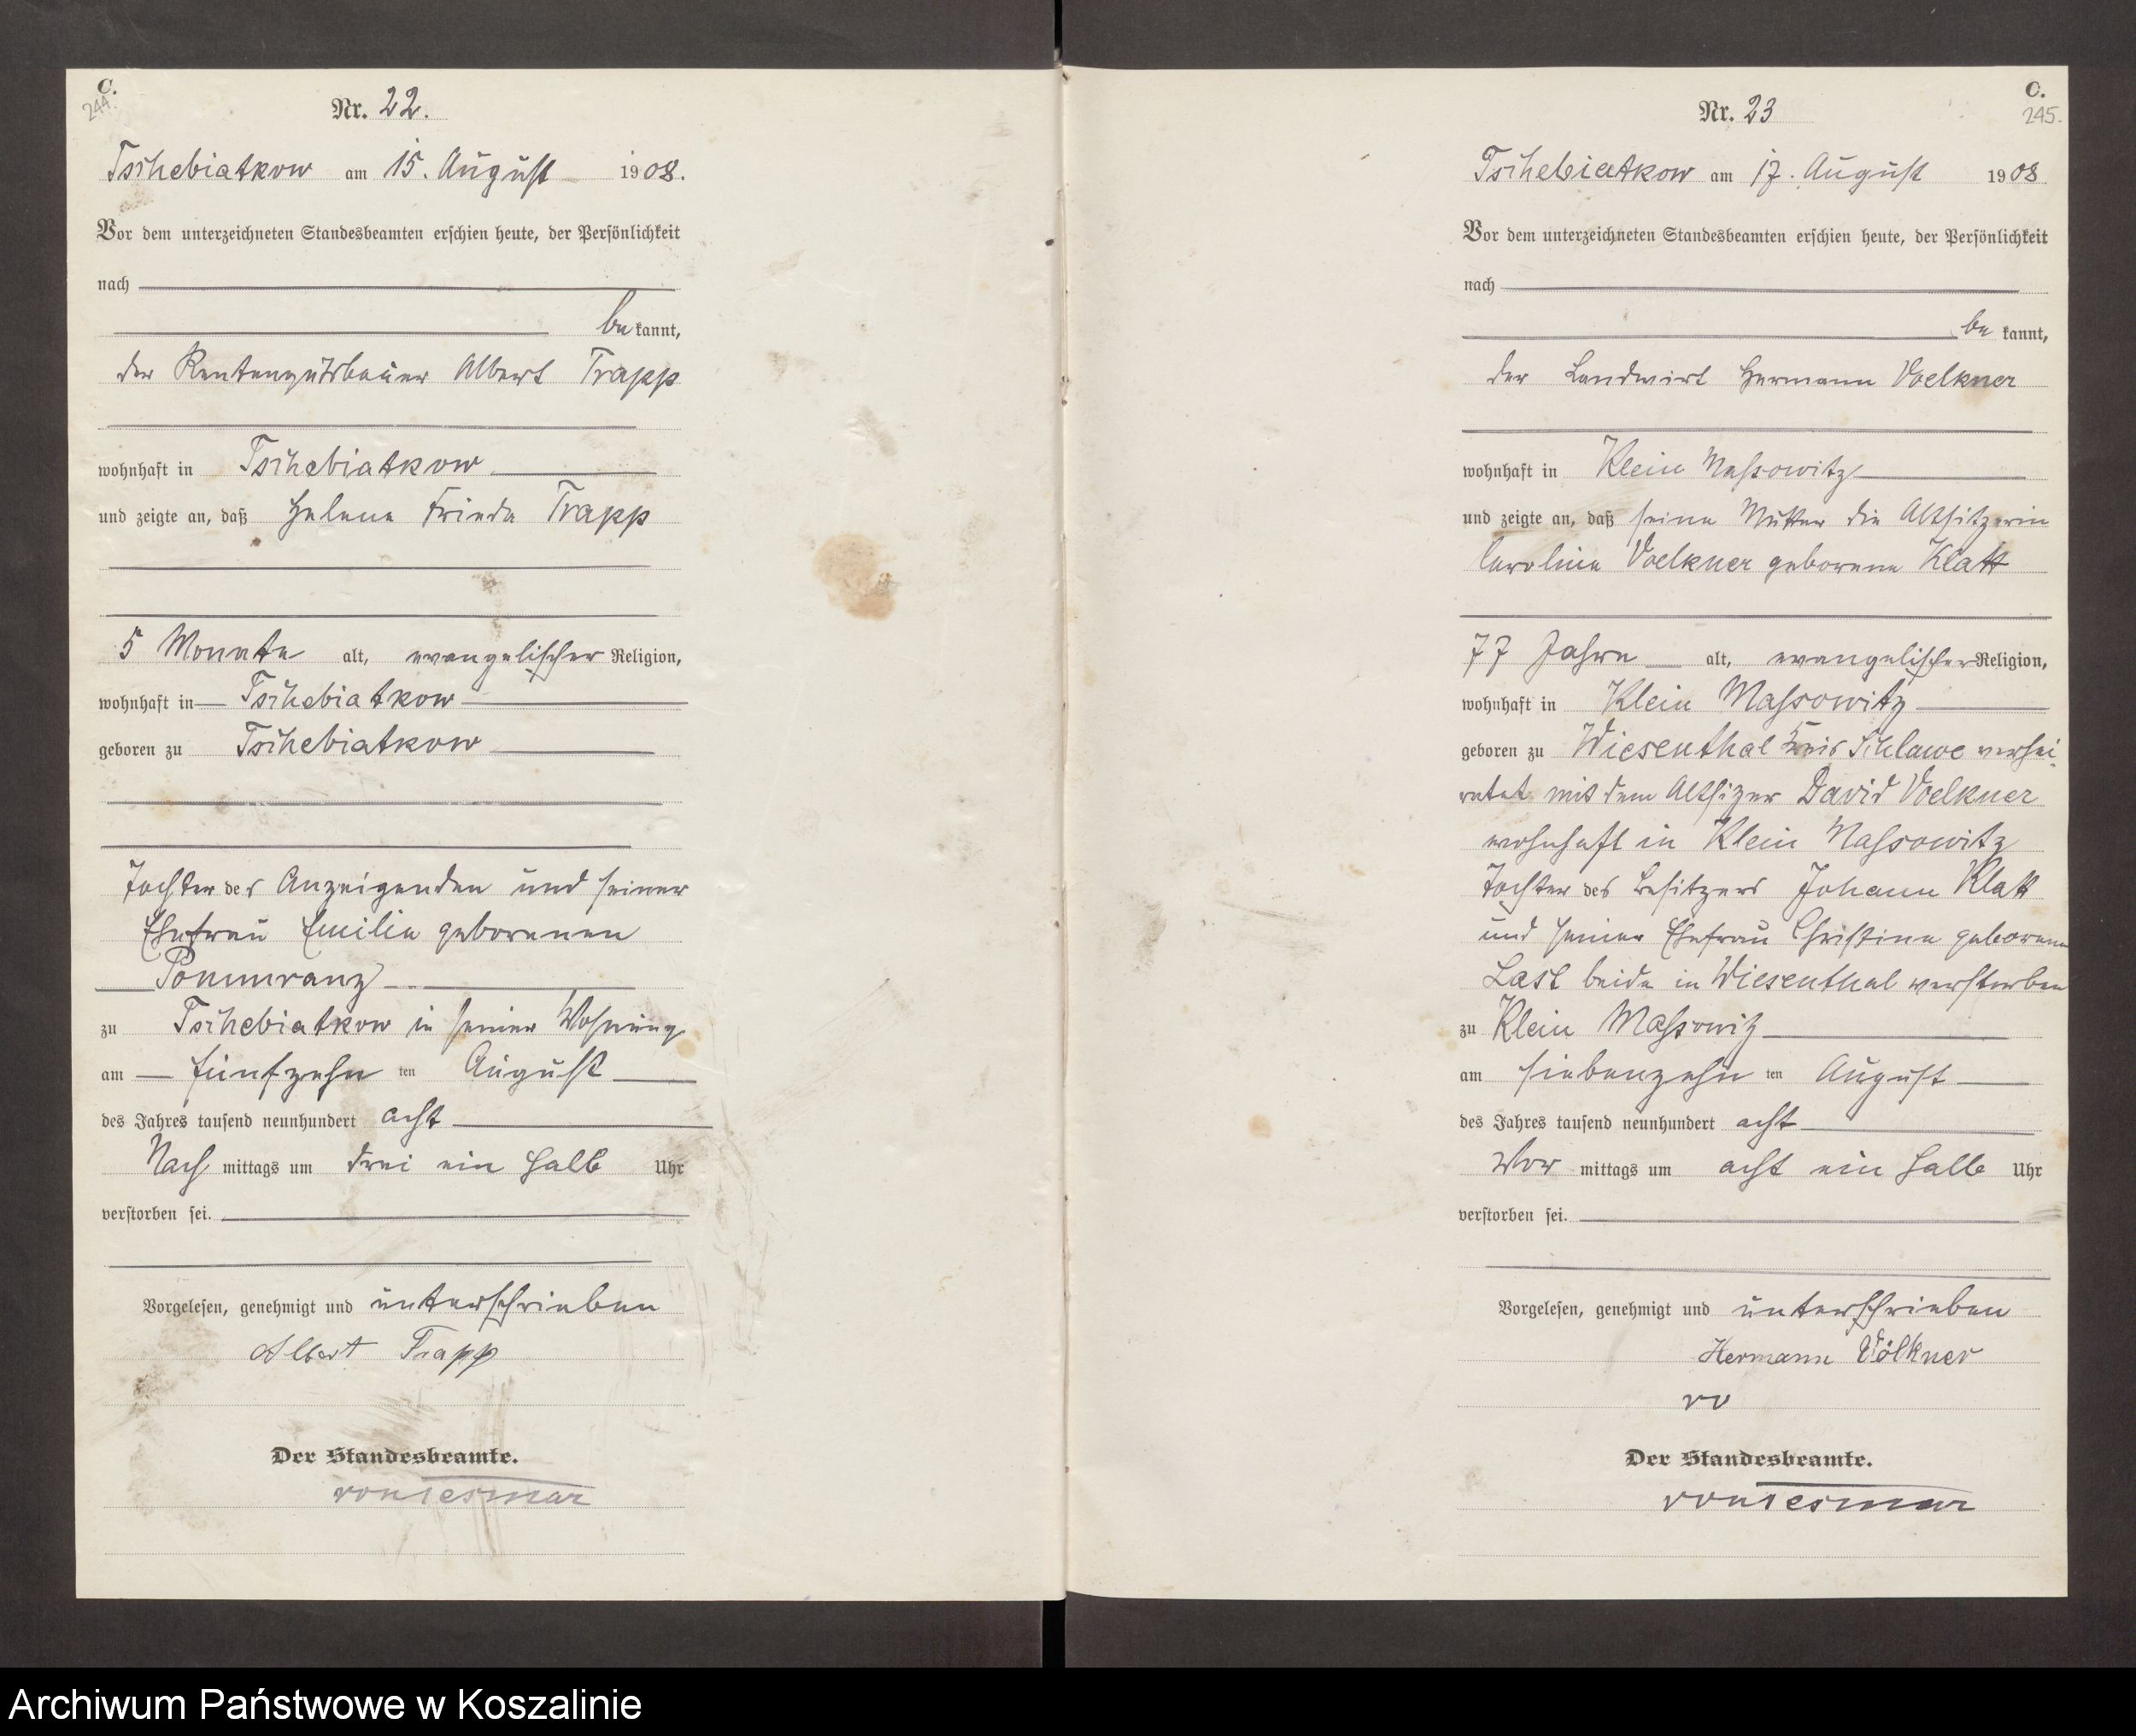 C.
244.
Nr. 22.
Tschebiatkow am 15. August 1908.
Vor dem unterzeichneten Standesbeamten erschien heute, der Persönlichkeit
nach
bekannt,
der Rentengutsbauer Albert Trapp
wohnhaft in Tschebiatkow
und zeigte an, daß Helene Frieda Trapp
5 Monate alt, evangelischer Religion,
wohnhaft in Tschebiatkow
geboren zu Tschebiatkow
Tochter des Anzeigenden und seiner
Ehefrau Emilie geborenen
Pommranz
zu Tschebiatkow in seiner Wohnung
am fünfzehn ten August
des Jahres tausend neunhundert acht
Nach mittags um drei ein halb Uhr
verstorben sei.
Vorgelesen, genehmigt und unterschrieben
Albert Trapp
Der Standesbeamte.
C.
245.
Nr. 23
Tschebiatkow am 17. August 1908
Vor dem unterzeichneten Standesbeamten erschien heute, der Persönlichkeit
nach
bekannt,
der Landwirt Hermann Voelkner
wohnhaft in Klein Massowitz
und zeigte an, daß seine Mutter die Altsitzerin
Caroline Voelkner geborene Klatt
77 Jahre alt, evangelischer Religion,
wohnhaft in Klein Massowitz
geboren zu Wiesenthal Kreis Schlawe verhei-
ratet mit dem Altsizer David Voelkner
wohnhaft in Klein Massowitz
Tochter des Besitzers Johann Klatt
und seiner Ehefrau Christine geborene
Last beide in Wiesenthal verstorben
zu Klein Massowitz
am siebenzehn ten August
des Jahres tausend neunhundert acht
Vor mittags um acht ein halb Uhr
verstorben sei.
Vorgelesen, genehmigt und unterschrieben
Hermann Völkner
Der Standesbeamte.
Archiwum Państwowe w Koszalinie